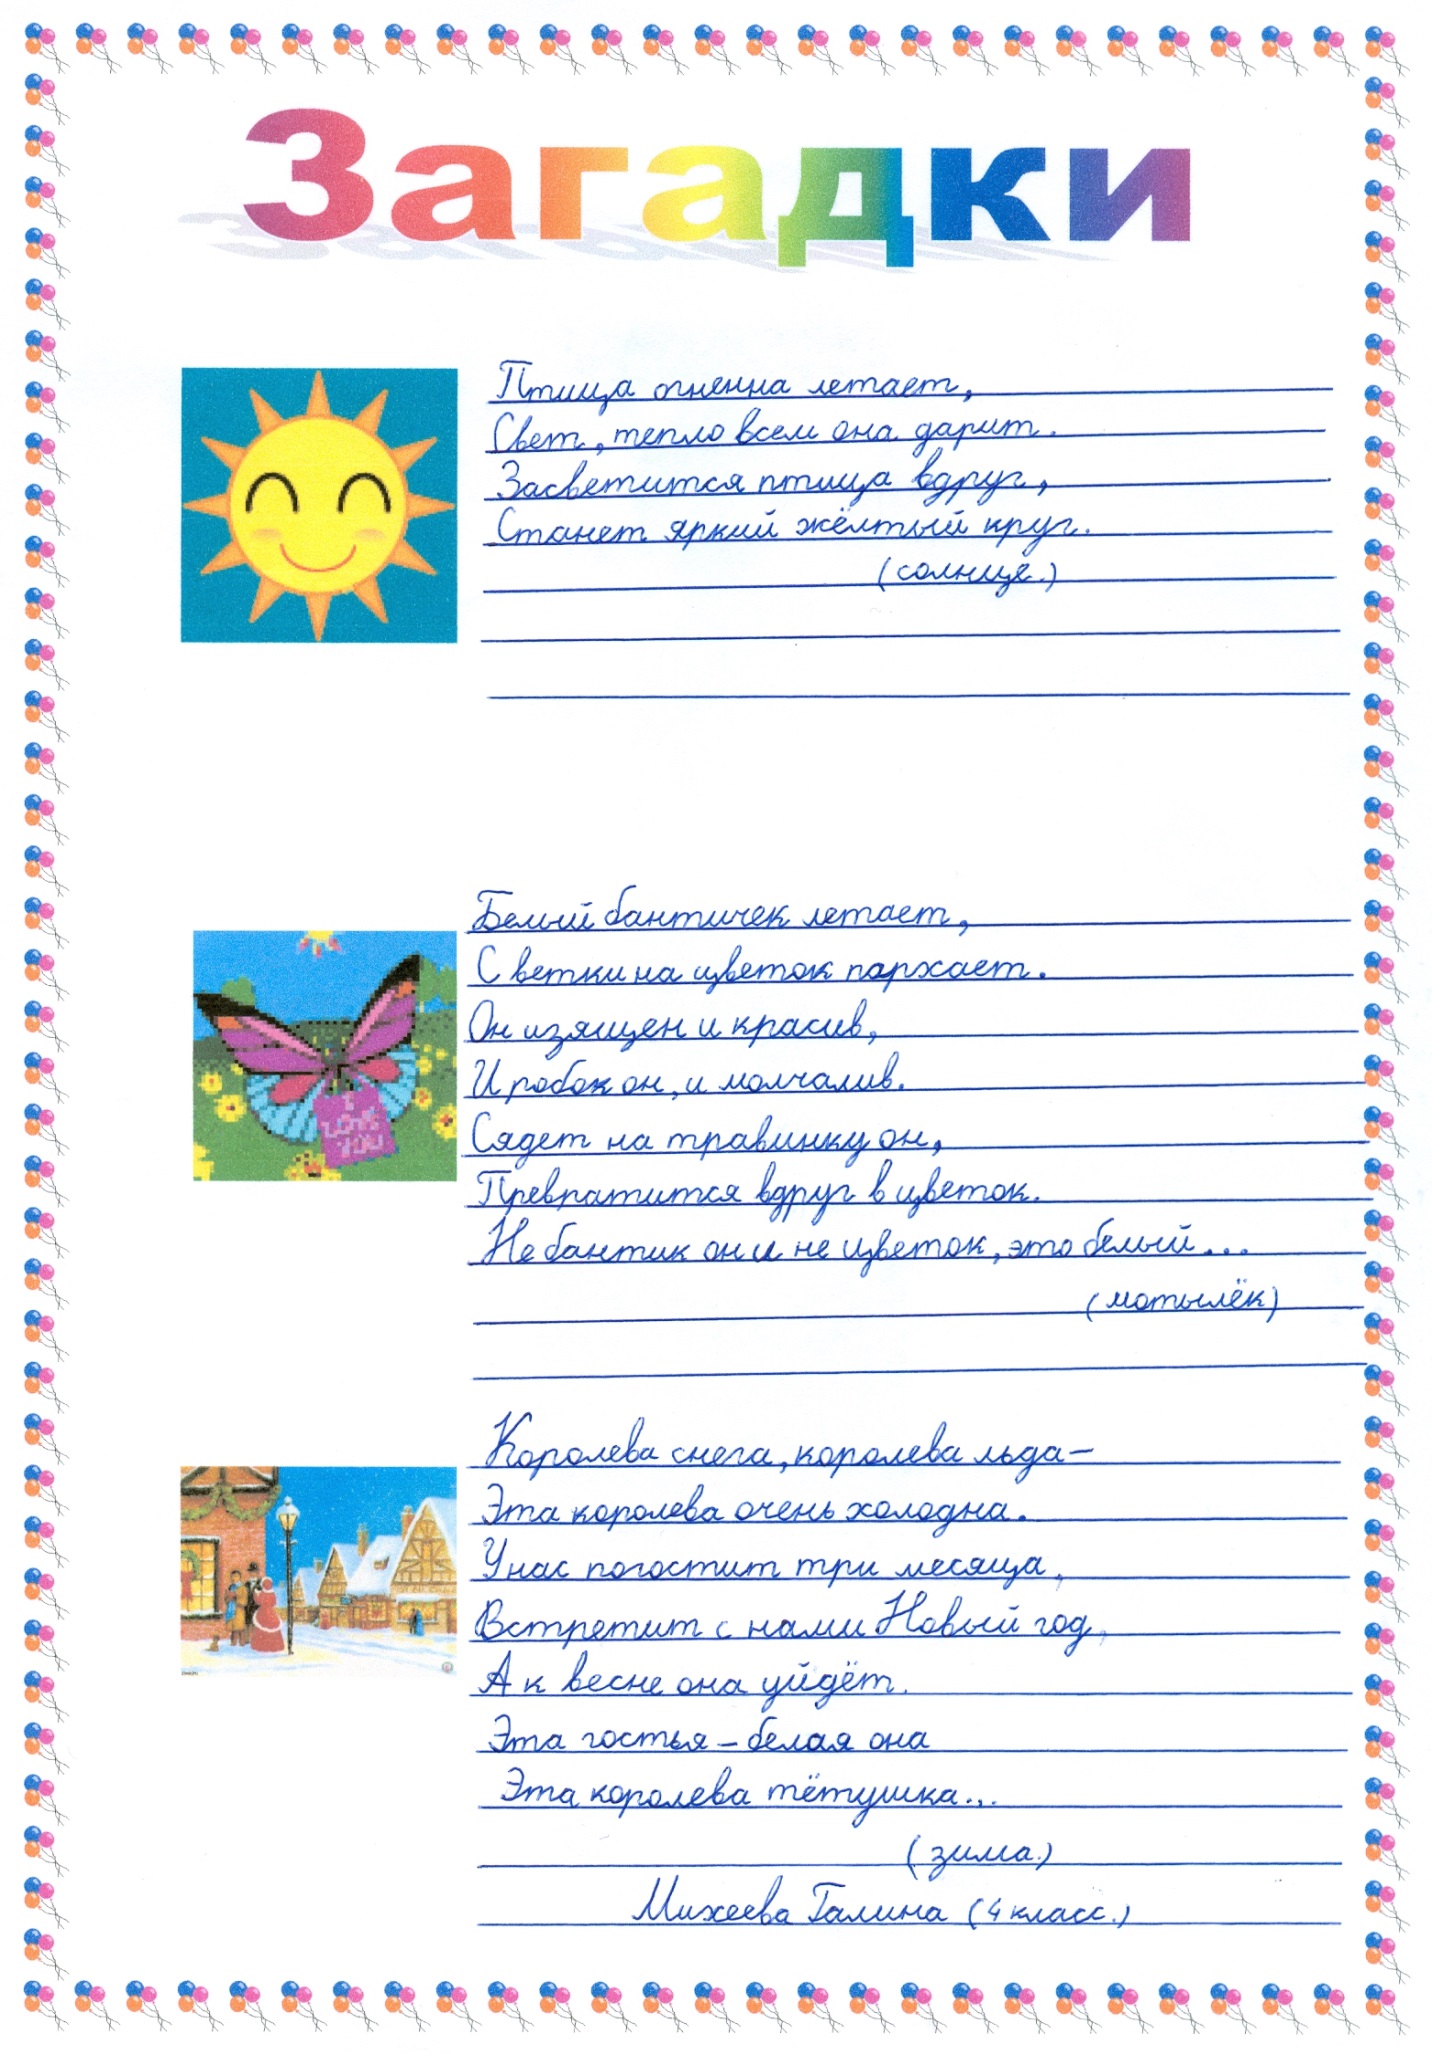 Загадки
Птица огненна летает,
Свет, тепло всем она дарит.
Засветится птица вдруг,
Станет яркий жёлтый круг.
(солнце.)
Белый бантичек летает,
С ветки на цветок пархает.
Он изящен и красив,
И робок он, и молчалив.
Сядет на травинку он,
Превратится вдруг в цветок.
Не бантик он и не цветок, это белый...
(мотылёк)
Королева снега, королева льда –
Эта королева очень холодна.
У нас погостит три месяца,
Встретит с нами Новый год,
А к весне она уйдёт.
Эта гостья – белая она
Эта королева тётушка...
(зима.)
Михеева Галина (4 класс.)
I
LOVE
YOU